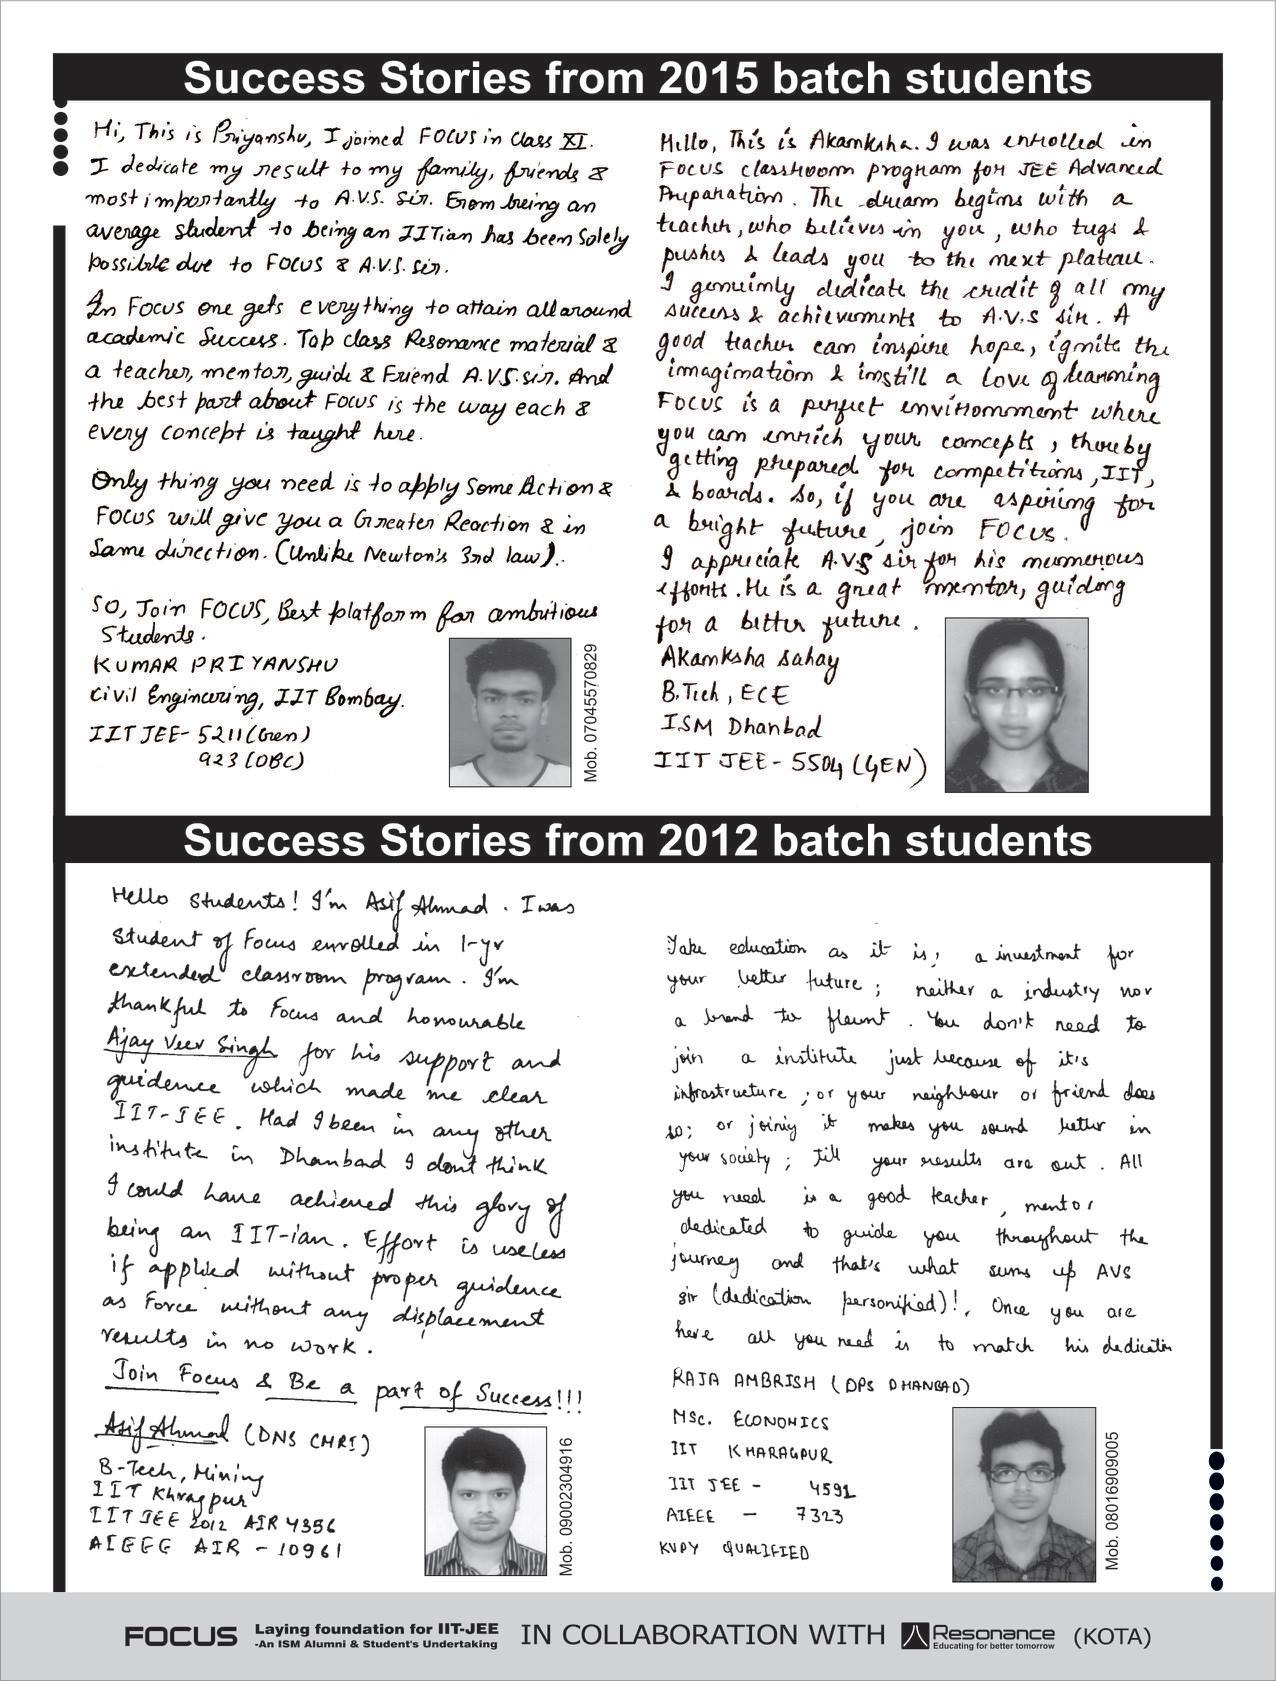 Success Stories from 2015 batch students
Hi, This is Priyanshu, I joined FOCUS in Class XI.
I dedicate my result to my family, friends &
most importantly to A.V.S. Sir. From being an
average student to being an IITian has been solely
possible due to FOCUS & A.V.S. sir.
In Focus one gets everything to attain all around
academic Success. Top class Resonance material &
a teacher, mentor, guide & Friend A.V.S. sir. And
the best part about FOCUS is the way each &
every concept is taught here.
Only thing you need is to apply Some Action &
FOCUS will give you a Greater Reaction & in
Same direction. (Unlike Newton's 3rd law).
So, Join FOCUS, Best platform for ambitious
Students.
KUMAR PRIYANSHU
Civil Engineering, IIT Bombay.
IIT JEE- 5211 (Gen)
923 (OBC)
Mob. 07045570829
Hello, This is Akanksha. I was enrolled in
FOCUS classroom program for JEE Advanced
Preparation. The dream begins with a
teacher, who believes in you, who tugs &
pushes & leads you to the next plateau.
I genuinly dedicate the credit of all my
success & achievements to A.V.S sir. A
good teacher can inspire hope, ignite the
imagination & instill a love of learning
FOCUS is a perfect environment where
you can enrich your concepts, thereby
getting prepared for competitions, IIT,
& boards. So, if you are aspiring for
a bright future, join FOCUS.
I appreciate A.V.S sir for his numerous
efforts. He is a great mentor, guiding
for a better future.
Akanksha Sahay
B.Tech, ECE
ISM Dhanbad
IIT JEE - 5504 (GEN)
Success Stories from 2012 batch students
Hello Students! I'm Asif Ahmad. I was
Student of Focus enrolled in 1-yr
extended classroom program. I'm
thankful to Focus and honourable
Ajay Veer Singh for his support and
guidence which made me clear
IIT-JEE. Had I been in any other
institute in Dhanbad I dont think
I could have achieved this glory of
being an IIT-ian. Effort is useless
if applied without proper guidence
as Force without any displacement
results in no work.
Join Focus & Be a part of Success!!!
Asif Ahmad (DNS CMRI)
B-Tech, Mining
IIT Khragpur
IIT JEE 2012 AIR 4356
AIEEE AIR - 10961
Mob. 09002304916
Take education as it is; a investment for
your better future; neither a industry nor
a brand to flaunt. You don't need to
join a institute just because of it's
infrastructure; or your neighbour or friend does
so; or joining it makes you sound better in
your society; till your results are out. All
you need is a good teacher, mentor
dedicated to guide you throughout the
journey and that's what sums up AVS
sir (dedication personified)!. Once you are
here all you need is to match his dedication
RAJA AMBRISH (DPS DHANBAD)
MSC. ECONOMICS
IIT KHARAGPUR
IIT JEE - 4591
AIEEE - 7323
KVPY QUALIFIED
Mob. 08016909005
FOCUS Laying foundation for IIT-JEE
-An ISM Alumni & Student's Undertaking
IN COLLABORATION WITH Resonance (KOTA)
Educating for better tomorrow